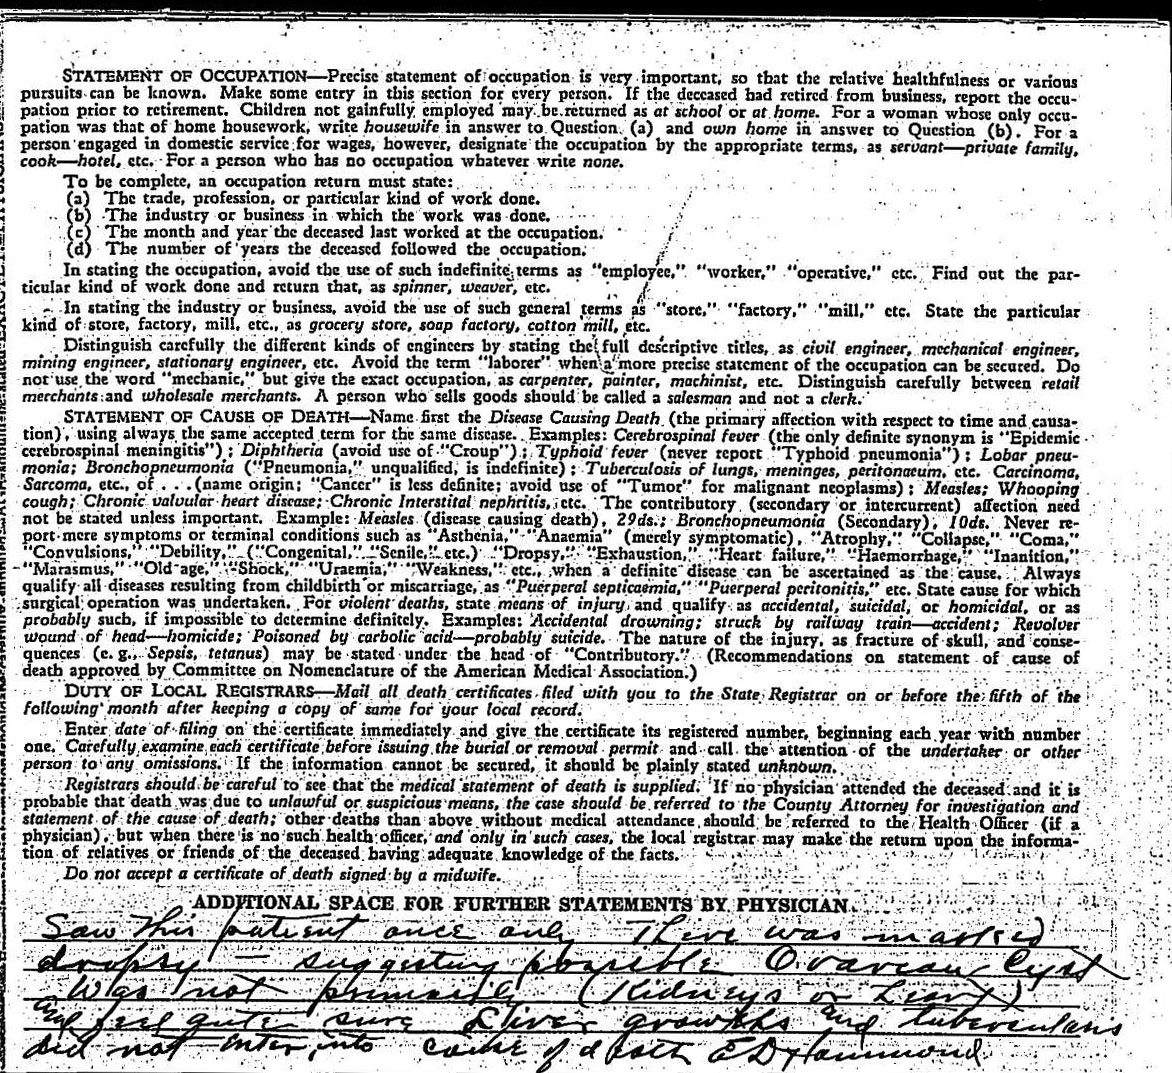 STATEMENT OF OCCUPATION—Precise statement of occupation is very important, so that the relative healthfulness or various
pursuits can be known. Make some entry in this section for every person. If the deceased had retired from business, report the occu-
pation prior to retirement. Children not gainfully employed may be returned as at school or at home. For a woman whose only occu-
pation was that of home housework, write housewife in answer to Question (a) and own home in answer to Question (b). For a
person engaged in domestic service for wages, however, designate the occupation by the appropriate terms, as servant—private family,
cook—hotel, etc. For a person who has no occupation whatever write none.
To be complete, an occupation return must state:
(a) The trade, profession, or particular kind of work done.
(b) The industry or business in which the work was done.
(c) The month and year the deceased last worked at the occupation.
(d) The number of years the deceased followed the occupation.
In stating the occupation, avoid the use of such indefinite terms as "employee," "worker," "operative," etc. Find out the par-
ticular kind of work done and return that, as spinner, weaver, etc.
In stating the industry or business, avoid the use of such general terms as "store," "factory," "mill," etc. State the particular
kind of store, factory, mill, etc., as grocery store, soap factory, cotton mill, etc.
Distinguish carefully the different kinds of engineers by stating the full descriptive titles, as civil engineer, mechanical engineer,
mining engineer, stationary engineer, etc. Avoid the term "laborer" when a more precise statement of the occupation can be secured. Do
not use the word "mechanic," but give the exact occupation, as carpenter, painter, machinist, etc. Distinguish carefully between retail
merchants and wholesale merchants. A person who sells goods should be called a salesman and not a clerk.
STATEMENT OF CAUSE OF DEATH—Name first the Disease Causing Death (the primary affection with respect to time and causa-
tion), using always the same accepted term for the same disease. Examples: Cerebrospinal fever (the only definite synonym is "Epidemic
cerebrospinal meningitis"); Diphtheria (avoid use of "Croup"); Typhoid fever (never report "Typhoid pneumonia"); Lobar pneu-
monia; Bronchopneumonia ("Pneumonia," unqualified, is indefinite); Tuberculosis of lungs, meninges, peritonaeum, etc. Carcinoma,
Sarcoma, etc., of . . . (name origin; "Cancer" is less definite; avoid use of "Tumor" for malignant neoplasms); Measles; Whooping
cough; Chronic valvular heart disease; Chronic Interstital nephritis, etc. The contributory (secondary or intercurrent) affection need
not be stated unless important. Example: Measles (disease causing death), 29ds.; Bronchopneumonia (Secondary), 10ds. Never re-
port mere symptoms or terminal conditions such as "Asthenia," "Anaemia" (merely symptomatic), "Atrophy," "Collapse," "Coma,"
"Convulsions," "Debility," ("Congenital," "Senile," etc.) "Dropsy," "Exhaustion," "Heart failure," "Haemorrhage," "Inanition,"
"Marasmus," "Old age," "Shock," "Uraemia," "Weakness," etc., when a definite disease can be ascertained as the cause. Always
qualify all diseases resulting from childbirth or miscarriage, as "Puerperal septicaemia," "Puerperal peritonitis," etc. State cause for which
surgical operation was undertaken. For violent deaths, state means of injury and qualify as accidental, suicidal, or homicidal, or as
probably such, if impossible to determine definitely. Examples: Accidental drowning; struck by railway train—accident; Revolver
wound of head—homicide; Poisoned by carbolic acid—probably suicide. The nature of the injury, as fracture of skull, and conse-
quences (e. g., Sepsis, tetanus) may be stated under the head of "Contributory." (Recommendations on statement of cause of
death approved by Committee on Nomenclature of the American Medical Association.)
DUTY OF LOCAL REGISTRARS—Mail all death certificates filed with you to the State Registrar on or before the fifth of the
following month after keeping a copy of same for your local record.
Enter date of filing on the certificate immediately and give the certificate its registered number, beginning each year with number
one. Carefully examine each certificate before issuing the burial or removal permit and call the attention of the undertaker or other
person to any omissions. If the information cannot be secured, it should be plainly stated unknown.
Registrars should be careful to see that the medical statement of death is supplied. If no physician attended the deceased and it is
probable that death was due to unlawful or suspicious means, the case should be referred to the County Attorney for investigation and
statement of the cause of death; other deaths than above without medical attendance should be referred to the Health Officer (if a
physician), but when there is no such health officer, and only in such cases, the local registrar may make the return upon the informa-
tion of relatives or friends of the deceased having adequate knowledge of the facts.
Do not accept a certificate of death signed by a midwife.
ADDITIONAL SPACE FOR FURTHER STATEMENTS BY PHYSICIAN
Saw this patient once only There was marked
dropsy — suggesting possible Ovarian Cyst
Was not primarily (Kidneys or Heart)
and feel quite sure Liver growths and tuberculosis
did not enter into cause of death E D Hammond